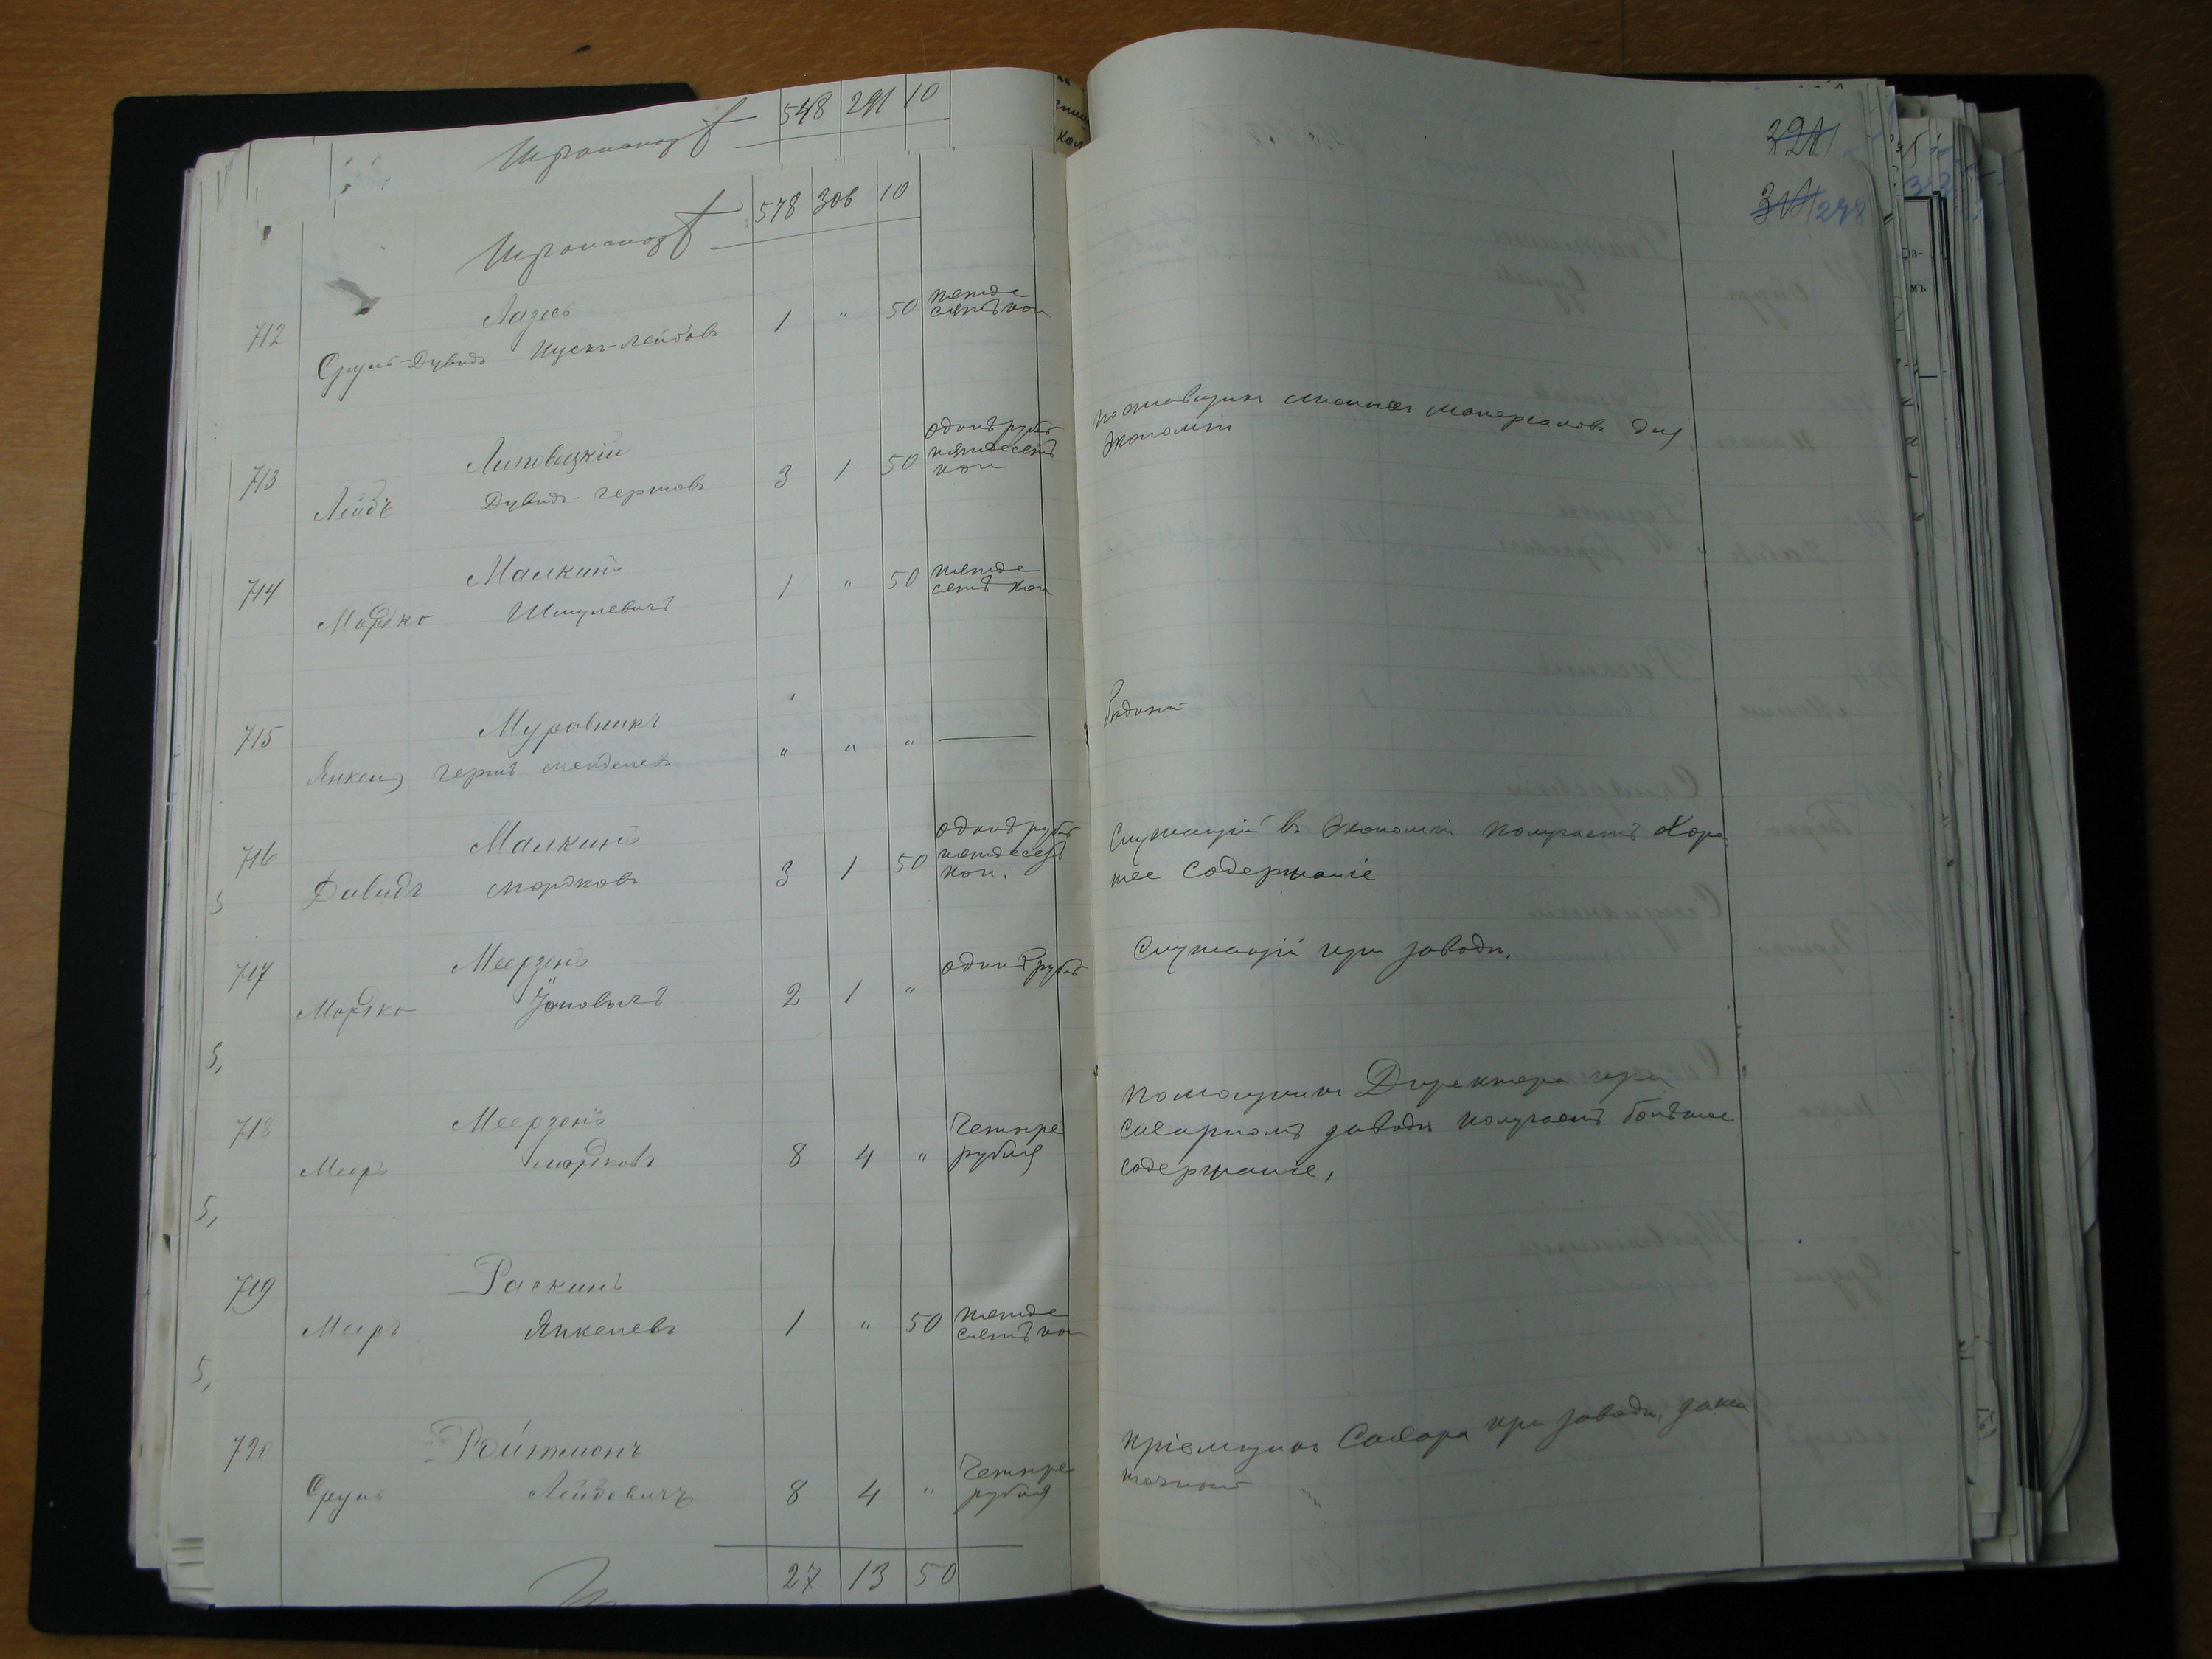 548 291 10
Транспортъ
578 306 10
Транспортъ
291
301 248
712 Лазесъ
Сруль-Дувидъ Ицекъ-Лейбовъ 1 " 50 пятьде
сятъ коп
713 Липовецкій
Лейбъ Дувидъ-Гершовъ 3 1 50 одинъ рубль
пятьдесятъ
коп
поставщикъ материаловъ для
экономіи
714 Малкинъ
Мордко Шмулевичъ 1 " 50 пятьде
сятъ коп
715 Муравникъ
Янкель Гершъ Менделевъ " " "
бѣдный
716 Малкинъ
Давидъ Мордковъ 3 1 50 одинъ рубль
пятьдесятъ
коп.
Служащій въ экономіи получаетъ хоро
шее содержаніе
717 Меерзонъ
Мордко Іоновичъ 2 1 " одинъ рубль
Служащій при заводѣ,
5,
718 Меерзонъ
Мееръ Мордковъ 8 4 " Четыре
рубля
помощникъ Директора при
сахарномъ заводѣ получаетъ большое
содержаніе,
5,
719 Раскинъ
Мееръ Янкелевъ 1 " 50 пятьде
сятъ коп
5,
720 Ройтманъ
Сруль Лейбовичъ 8 4 " Четыре
рубля
пріемщикъ Сахара при заводѣ, зажи
точный
27 13 50